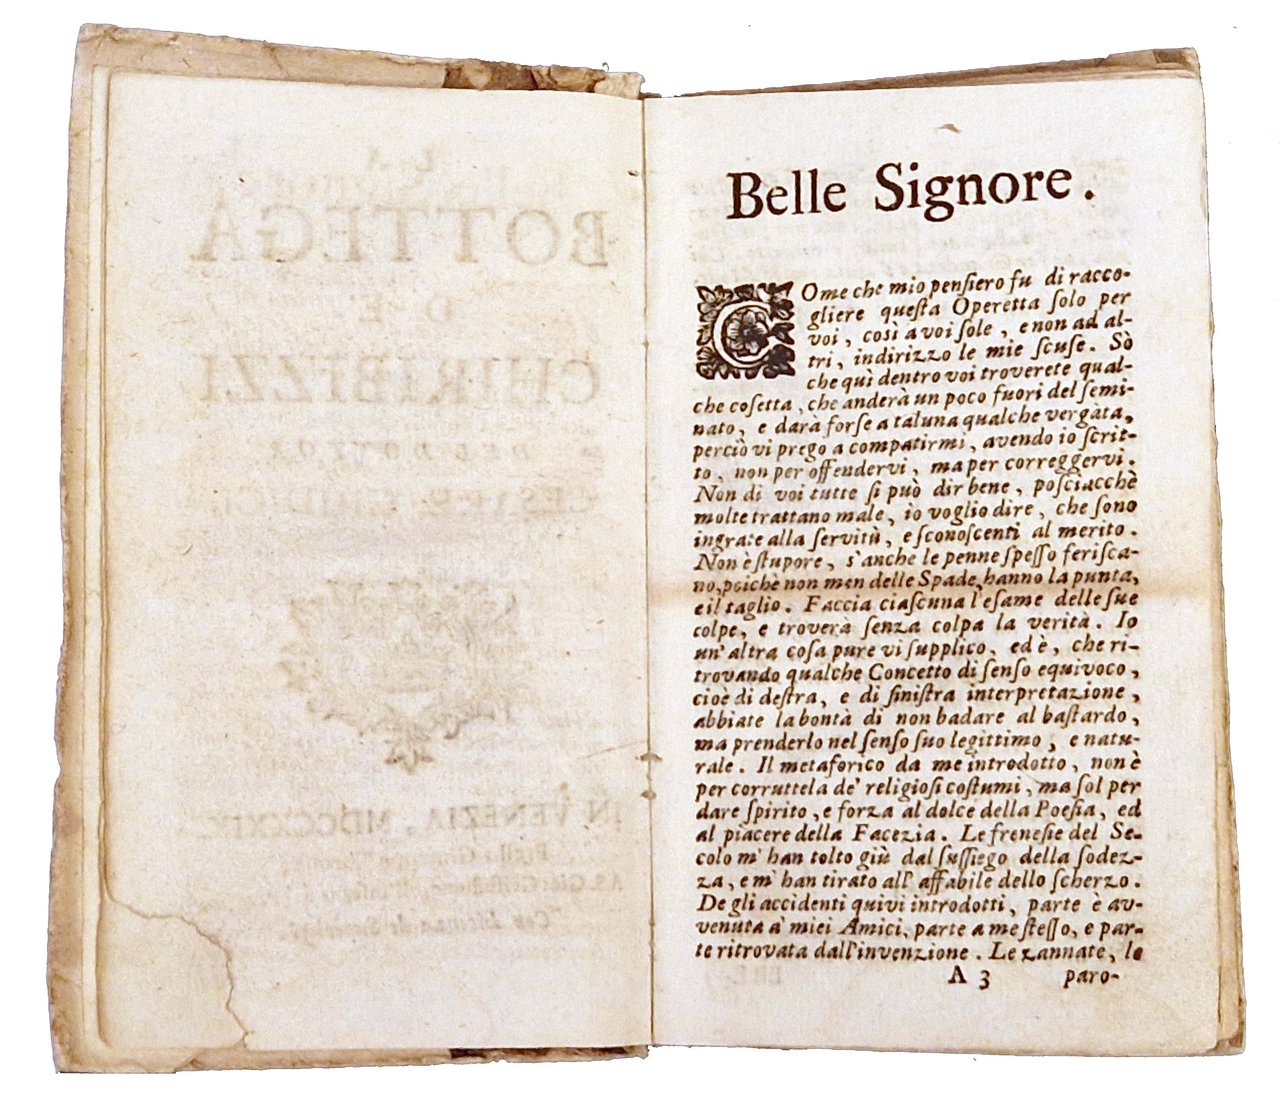 BOTTEGA
DE'
CHIRIBIZZI
DEL DOTTOR
IN VENEZIA,
Belle Signore.
COme che mio penſiero fu di racco-
gliere queſta Operetta ſolo per
voi, così a voi ſole, e non ad al-
tri, indirizzo le mie ſcuſe. Sò
che quì dentro voi troverete qual-
che coſetta, che anderà un poco fuori del ſemi-
nato, e darà forſe a taluna qualche vergàta,
perciò vi prego a compatirmi, avendo io ſcrit-
to, non per offendervi, ma per correggervi.
Non di voi tutte ſi può dir bene, poſciacchè
molte trattano male, io voglio dire, che ſono
ingrate alla ſervitù, e ſconoſcenti al merito.
Non è ſtupore, s'anche le penne ſpeſſo feriſca-
no, poichè non men delle Spade, hanno la punta,
e il taglio. Faccia ciaſcuna l'eſame delle ſue
colpe, e troverà ſenza colpa la verità. Io
un'altra coſa pure vi ſupplico, ed è, che ri-
trovando qualche Concetto di ſenſo equivoco,
cioè di deſtra, e di ſiniſtra interpretazione,
abbiate la bontà di non badare al baſtardo,
ma prenderlo nel ſenſo ſuo legittimo, e natu-
rale. Il metaforico da me introdotto, non è
per corruttela de' religioſi coſtumi, ma ſol per
dare ſpirito, e forza al dolce della Poeſia, ed
al piacere della Facezia. Le freneſie del Se-
colo m'han tolto giù dal ſuſſiego della ſodez-
za, e m'han tirato all'affabile dello ſcherzo.
De gli accidenti quivi introdotti, parte è av-
venuta a' miei Amici, parte a me ſteſſo, e par-
te ritrovata dall'invenzione. Le zannate, le
A 3 paro-